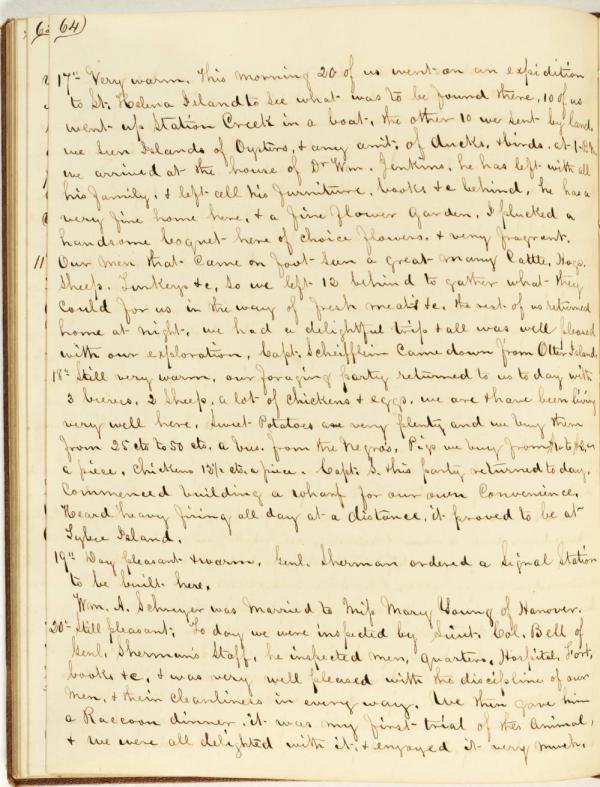 64)
17th Very warm. This morning 20 of us went on an expidition
to St. Helena Island to see what was to be found there, 10 of us
went up Station Creek in a boat, the other 10 we sent by land,
we seen Islands of Oysters, & any amt. of ducks, & birds. at 1 P.M.
we arrived at the house of Dr Wm. Jenkins, he has left with all
his family, & left all his furniture, books &c behind, he has a
very fine home here, & a fine flower Garden, I plucked a
handsome boquet here of choice flowers. & very fragrant.
Our men that came on foot seen a great many Cattle, Hogs,
Sheep, Turkeys &c, so we left 12 behind to gather what they
could for us in the way of fresh meats &c. the rest of us returned
home at night, we had a delightful trip & all was well pleased
with our exploration, Capt. Scheifflein came down from Otter Island,
18th Still very warm, our foraging party returned to us to day with
3 beeves, 2 Sheep, a lot of Chickens & eggs, we are & have been living
very well here, Sweet Potatoes are very plenty and we buy them
from 25 cts to 50 cts. a bus. from the Negros, Pigs we buy from
a piece, Chickens 12½ cts. a piece. Capt. S. & his party returned to day,
Commenced building a wharf for our own Convenience,
Heard heavy firing all day at a distance, it proved to be at
Tybee Island.
19th Day pleasant & warm. Genl. Sherman ordered a Signal Station
to be built here,
Wm. A. Schreyer was Married to Miss Mary Young of Hanover.
20th Still pleasant; To day we were inspected by Lieut. Col. Bell of
Genl. Sherman's Staff, he inspected men, quarters, Hospital, Fort,
books &c, & was very well pleased with the discipline of our
Men, & their cleanliness in every way. We then gave him
a Raccoon dinner, it was my first trial of the Animal,
& we were all delighted with it, & enjoyed it very much,